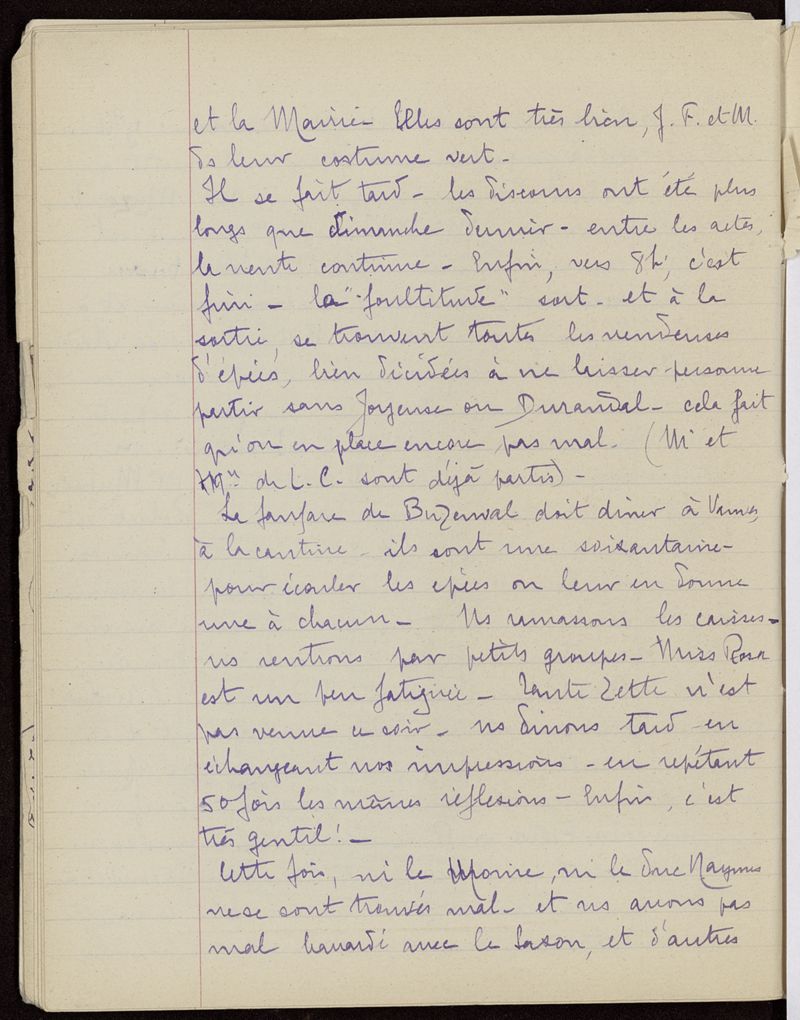 et la Mairie - Elles sont très bien, J. F. et M.
ds leur costume vert -
Il se fait tard - les discours ont été plus
longs que dimanche dernier - entre les actes,
la vente continue - Enfin, vers 8h, c'est
fini - la "foultitude" sort - et à la
sortie, se trouvent toutes les vendeuses
d'épées, bien décidées à ne laisser personne
partir sans Joyeuse ou Durandal - cela fait
qu'on en place encore pas mal. (Mr et
de L. C. sont déjà partis) -
La fanfare de Buzenval doit dîner à
à la cantine - ils sont une soixantaine -
pour écouler les épées on leur en donne
une à chacun - Ns ramassons les caisses -
ns rentrons par petits groupes - Miss Rosa
est un peu fatiguée - Tante Zette n'est
pas venue ce soir - ns dinons tard en
échangeant nos impressions - en repétant
50 fois les mêmes réflexions - Enfin, c'est
très gentil ! -
Cette fois, ni le Maire, ni le duc Naymes
ne se sont trouvés mal - et ns avons pas
mal bavardé avec le Saxon, et d'autres